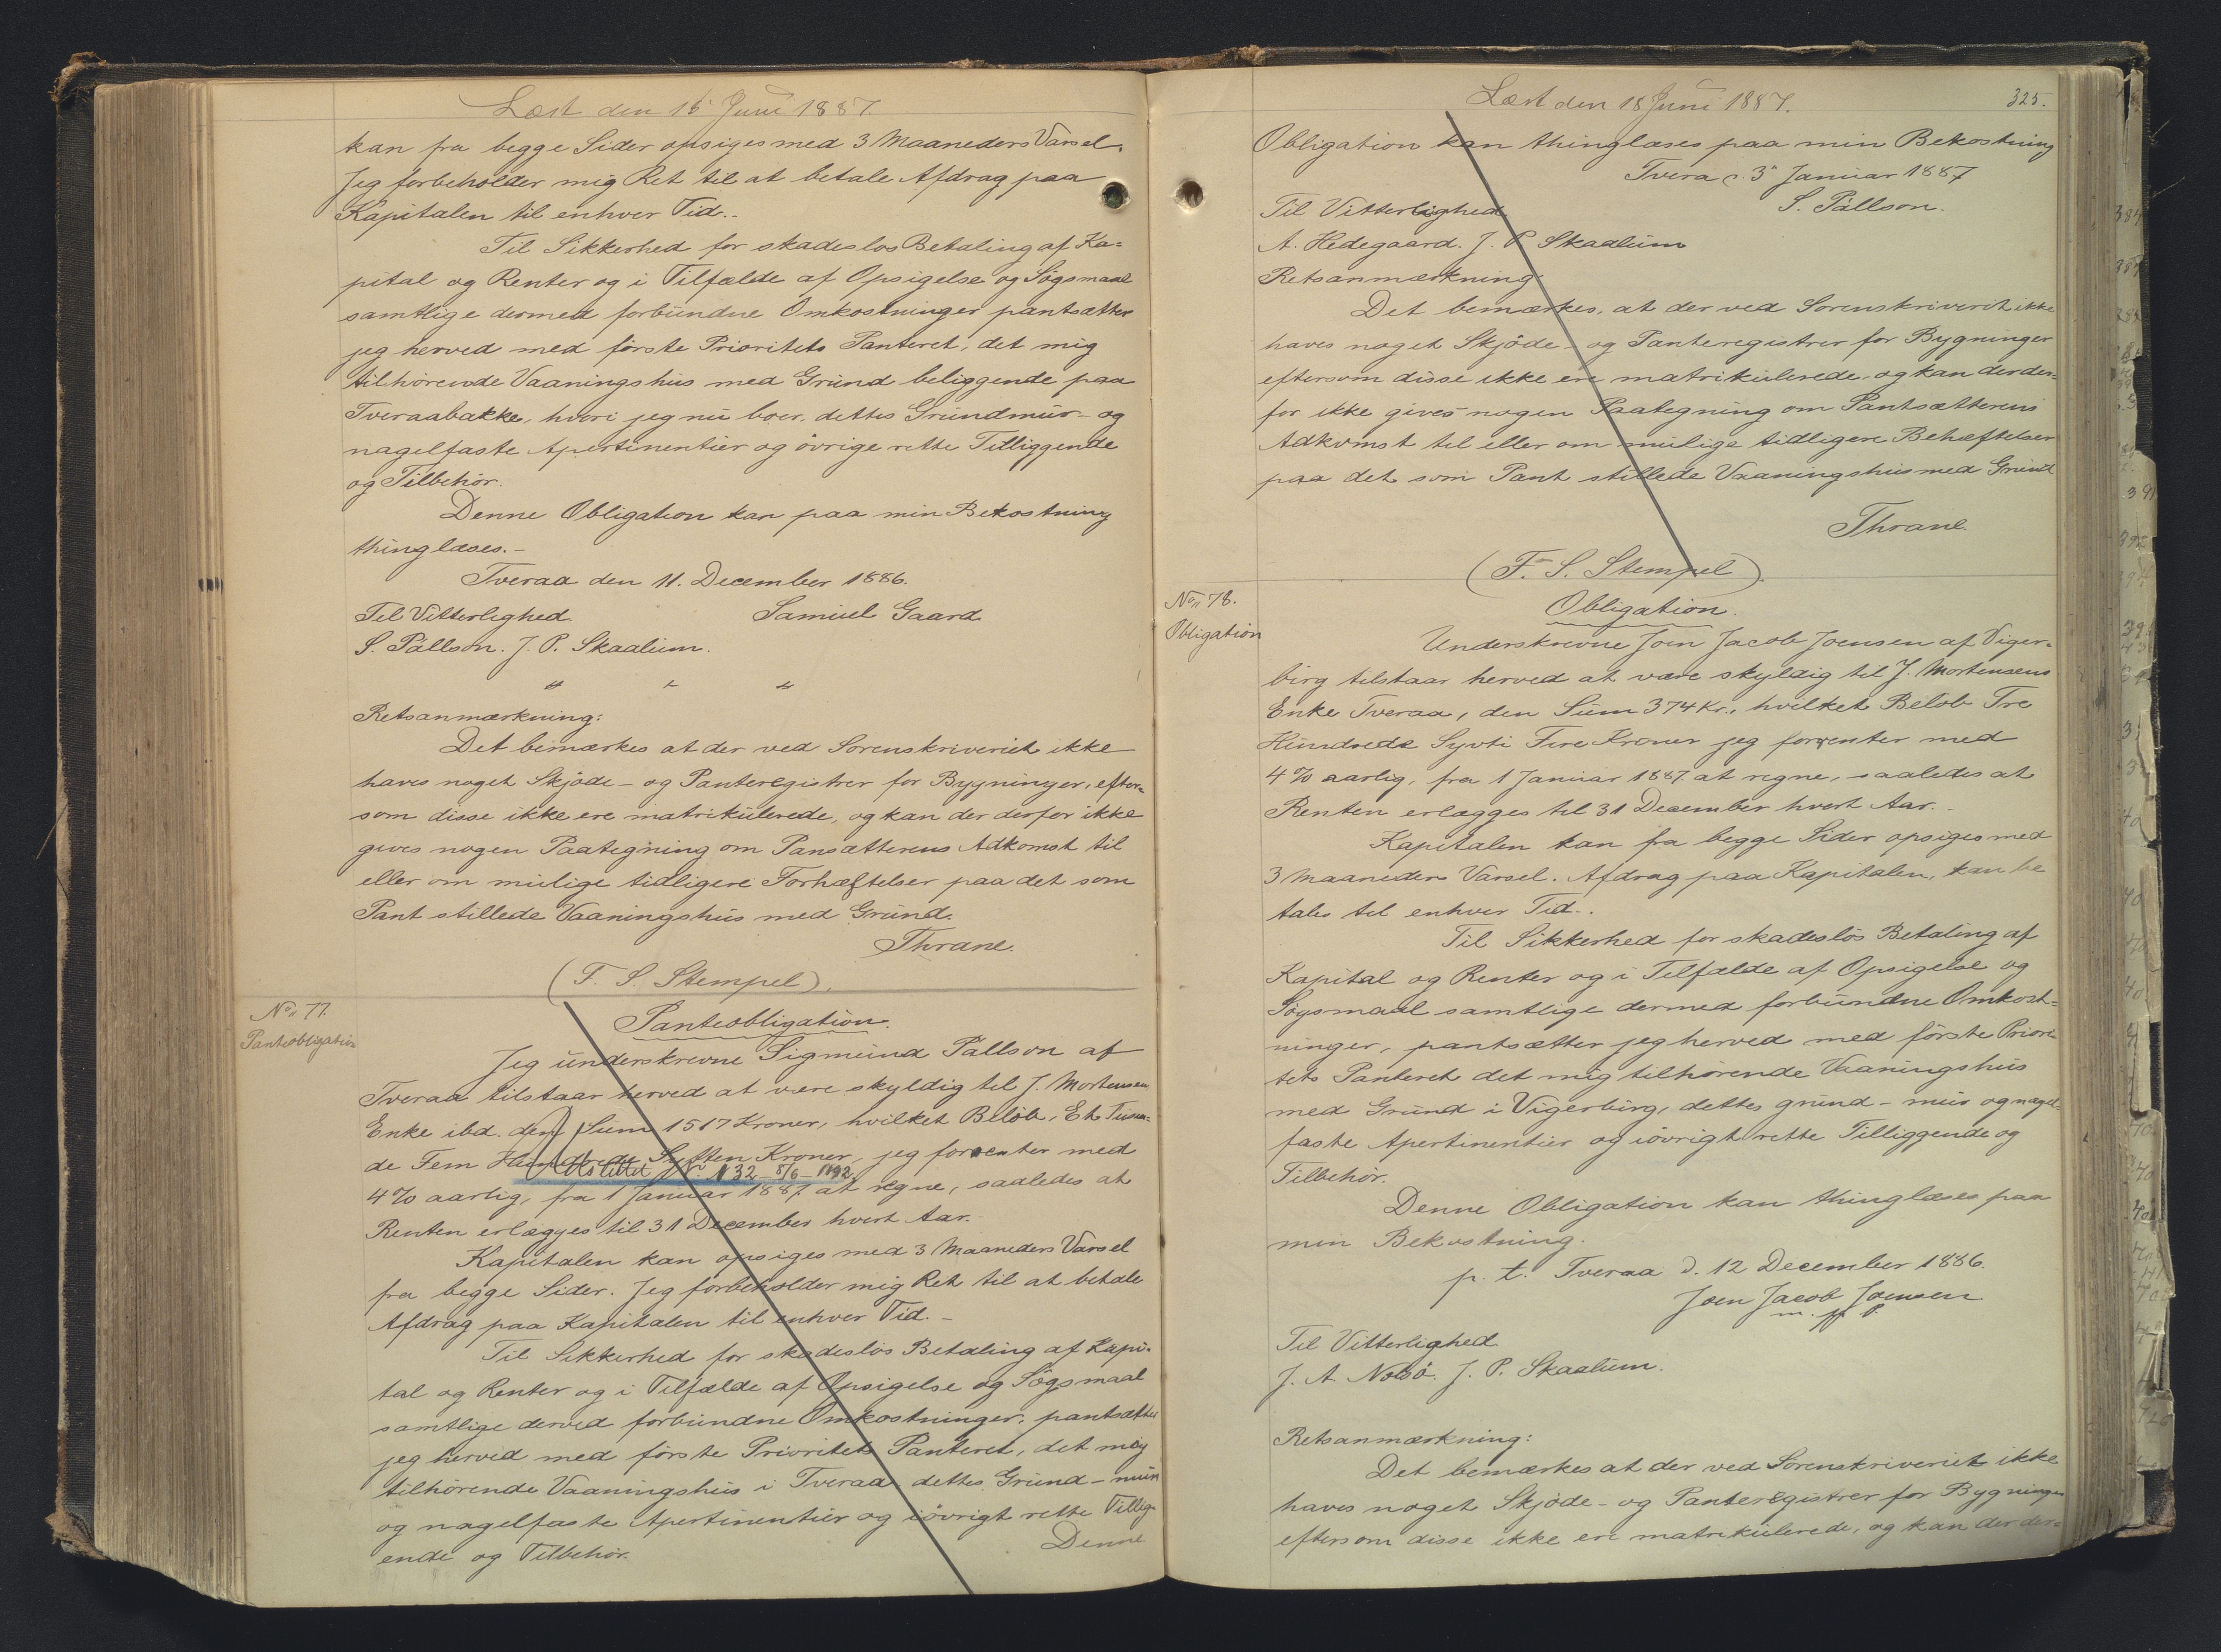 Læst den 18 Juni 1887.
kan fra begge Sider opsiges med 3 Maaneders Varsel.
Jeg forbeholder mig Ret til at betale Afdrag paa
Kapitalen til enhver Tid..
Til Sikkerhed for skadeslos Betaling af Ka=
pital og Renter og i Tilfælde af Opsigelse og Søgsmaal
samtlige dermed forbundne Omkostninger pantsætter
jeg herved med förste Prioritets Panteret, det mig
tilhörende Vaaningshus med Grund beliggende paa
Tveraabakke, hvori jeg nu boer, dettes Grundmur- og
nagelfaste Apertinentier og övrige rette Tilliggende
og Tilbehör.
Denne Obligation kan paa min Bekostning
thinglæses.-
Tveraa den 11. December 1886.
Til Vitterlighed. Samuel Gaard
S. Pállson. J. P. Skaalum.
Retsanmærkning:
Det bemærkes at der ved Sorenskriveriet ikke
haves noget Skjöde- og Panteregistrer for Bygninger, efter=
som disse ikke ere matrikulerede, og kan der derfor ikke
gives nogen Paategning om Pansætterens Adkomst til
eller om mulige tidligere Forhæftelser paa det som
Pant stillede Vaaningshus med Grund.
Thrane.
(F. S. Stempel).
No. 77.
Panteobligation
Panteobligation.
Jeg underskrevne Sigmund Pállson af
Tveraa tilstaar herved at være skyldig til J. Mortensen
Enke ibd. den Sum 1517 Kroner, hvilket Belöb, Et Tusin-
de Fem Hundrede Sytten Kroner, jeg forrenter med
Udslettet No 132 - 8/6 - 1892
4 % aarlig, fra 1 Januar 1887 at regne, saaledes at
Renten erlægges til 31 December hvert Aar.
Kapitalen kan opsiges med 3 Maaneders Varsel
fra begge Sider. Jeg forbeholder mig Ret til at betale
Afdrag paa Kapitalen til enhver Tid.-
Til Sikkerhed for skadeslös Betaling af Kapi-
tal og Renter og i Tilfælde af Opsigelse og Sögsmaal
samtlige derved forbundne Omkostninger, pantsætter
jeg herved med förste Prioritets Panteret, det mig
tilhörende Vaaningshus i Tveraa dettes Grund- mur
og nagelfaste Apertinentier og iövrigt rette Tillig-
ende og Tilbehör.
Denne
Læst den 18 Juni 1887.
325.
Obligation kan thinglæses paa min Bekostning
Tveraa 3 Januar 1887
Til Vitterlighed S. Pállson.
A. Hedegaard. J. P. Skaalum
Retsanmærkning.
Det bemærkes, at der ved Sorenskriveriet ikke
haves noget Skjöde- og Panteregistrer for Bygninger
eftersom disse ikke ere matrikulerede og kan der der=
for ikke gives nogen Paategning om Pantsætterens
Adkomst til eller om mulige tidligere Behæftelser
paa det som Pant stillede Vaaningshus med Grund
Thrane.
(F. S. Stempel).
No. 78.
Obligation
Obligation.
Underskrevne Joen Jacob Joensen af Viger-
birg tilstaar herved at være skyldig til J. Mortensens
Enke Tveraa, den Sum 374 Kr., hvilket Belöb Tre
Hundrede Syvti Fire Kroner jeg forrenter med
4 % aarlig, fra 1 Januar 1887. at regne, saaledes at
Renten erlægges til 31 December hvert Aar.-
Kapitalen kan fra begge Sider opsiges med
3 Maaneders Varsel. Afdrag paa Kapitalen, kan be
tales til enhver Tid..
Til Sikkerhed for skadeslös Betaling af
Kapital og Renter og i Tilfælde af Opsigelse og
Sögsmaal samtlige dermed forbundne Omkost=
ninger, pantsætter jeg herved med förste Priori-
tets Panteret det mig tilhörende Vaaningshus
med Grund i Vigerbirg, dettes grund- mur og nagel-
faste Apertinentier og iövrigt rette Tilliggende og
Tilbehör.
Denne Obligation kan thinglæses paa
min Bekostning.
p. t. Tveraa d. 12 December 1886.
Joen Jacob Joensen
m. p. P.
Til Vitterlighed
J. A. Nolsö. J. P. Skaalum.
Retsanmærkning:
Det bemærkes at der ved Sorenskriveriet ikke
haves noget Skjöde- og Panteregistrer for Bygninger
eftersom disse ikke ere matrikulerede, og kan der der=